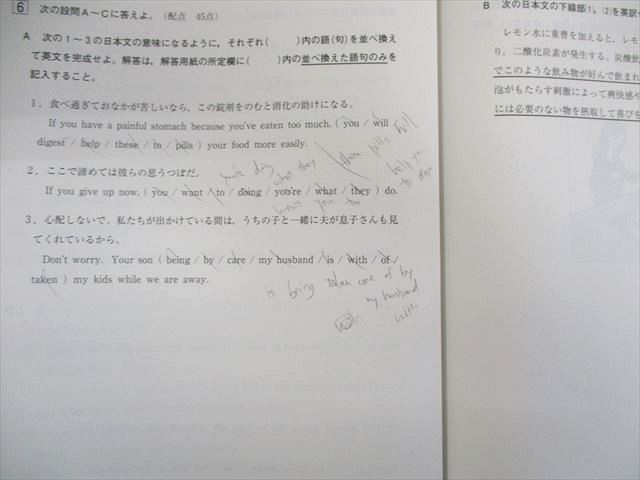 6 次の設問A~Cに答えよ。(配点 45点)
A 次の1~3の日本文の意味になるように,それぞれ( )内の語(句)を並べ換え
て英文を完成せよ。解答は,解答用紙の所定欄に( )内の並べ換えた語句のみを
記入すること。
1. 食べ過ぎておなかが苦しいなら,この錠剤をのむと消化の助けになる。
If you have a painful stomach because you've eaten too much, ( you / will
digest / help / these / in / pills ) your food more easily.
these pills will
help you
to digest
2. ここで諦めては彼らの思うつぼだ。
you're doing
what they
If you give up now, ( you / want / to / doing / you're / what / they ) do.
want you to
3. 心配しないで。私たちが出かけている間は,うちの子と一緒に夫が息子さんも見
てくれているから。
Don't worry. Your son ( being / by / care / my husband / is / with / of /
taken ) my kids while we are away.
is being taken care of by
my husband
with
B 次の日本文の下線部(1),(2)を英訳
レモン水に重曹を加えると,レモ
り,二酸化炭素が発生する。炭酸飲
でこのような飲み物が好んで飲まれ
泡がもたらす刺激によって爽快感や
には必要のない物を摂取して喜びを